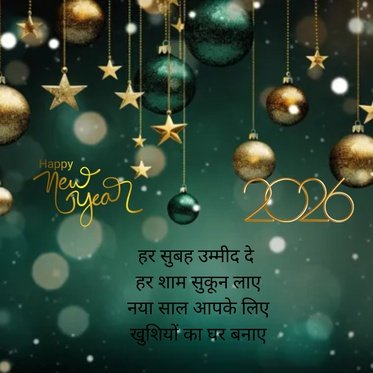 Happy
New
Year
2026
हर सुबह उम्मीद दे
हर शाम सुकून लाए
नया साल आपके लिए
खुशियों का घर बनाए